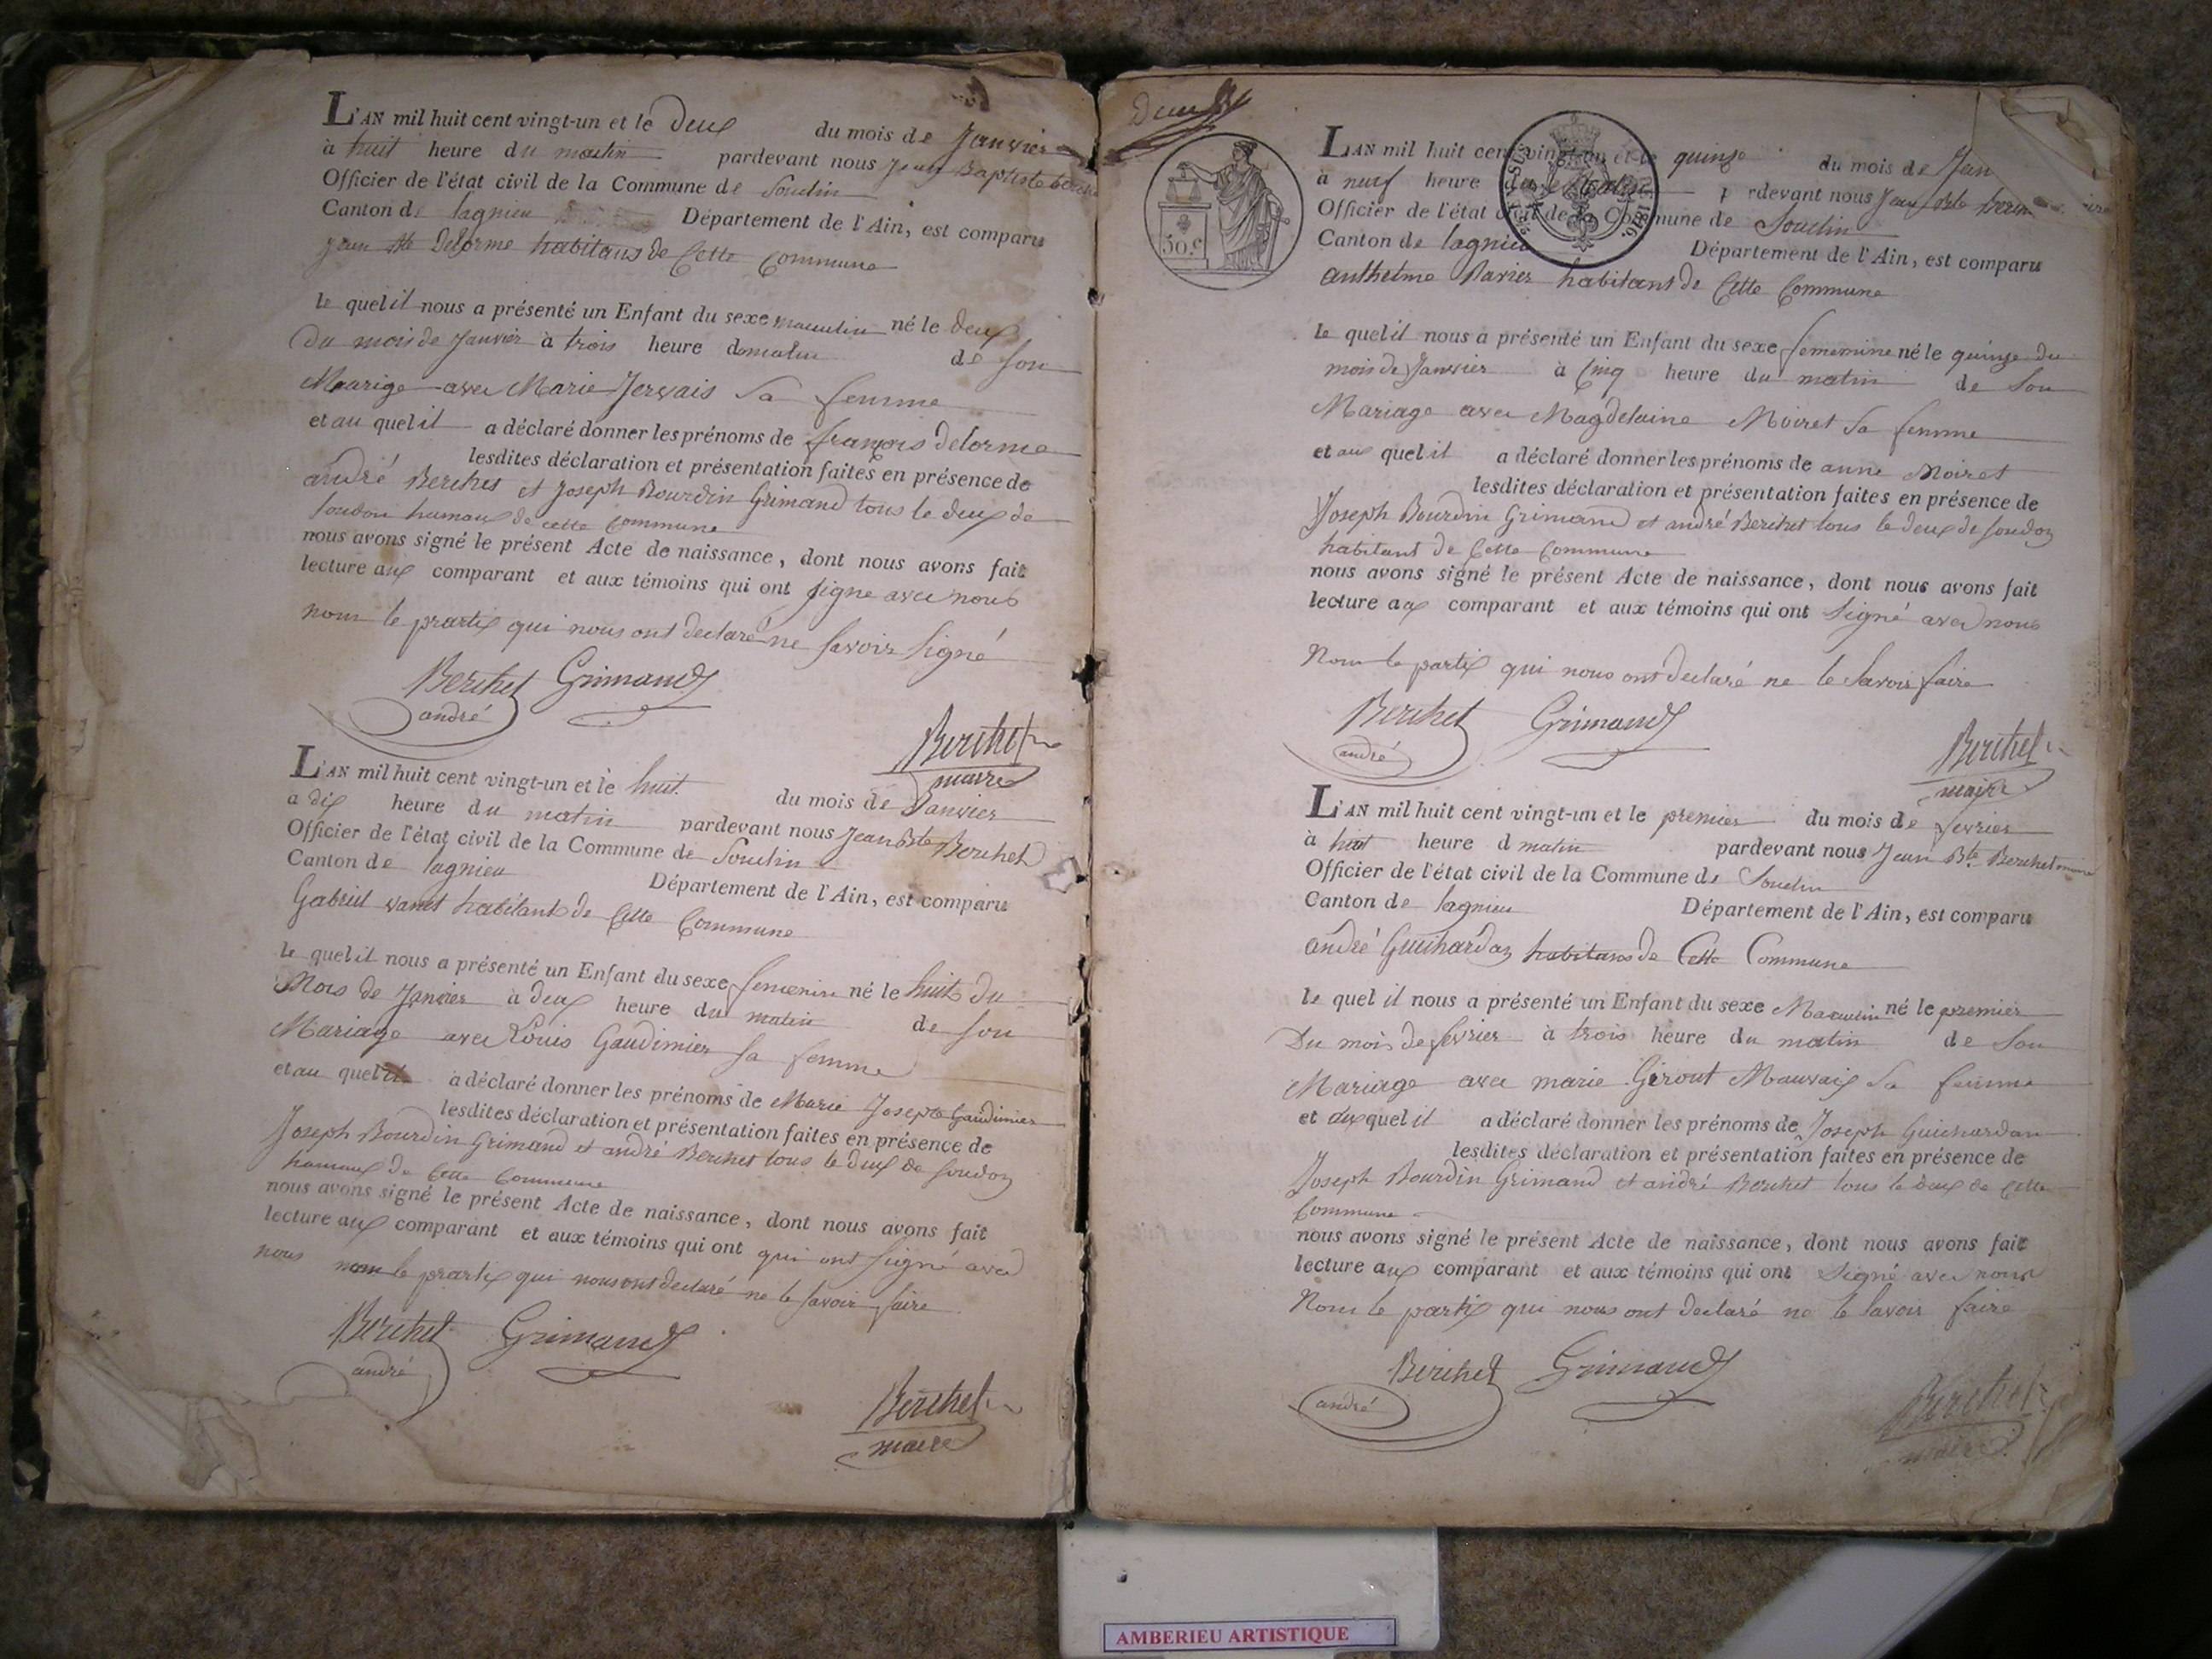 L'AN mil huit cent vingt-un et le deux du mois de Janvier
à huit heure du matin pardevant nous Jean Baptiste
Officier de l'état civil de la Commune de Soudin
Canton de lagnieu Département de l'Ain, est comparu
jean Delorme habitans de Cette Commune
le quel il nous a présenté un Enfant du sexe né le deux
Du mois de Janvier à trois heure de son
avec Marie Jervais Sa femme
et au quel il a déclaré donner les prénoms de françois delorme
lesdites déclaration et présentation faites en présence de
andré Berthet et Joseph Bourdin Grimand tous le deux de
de cette Commune
nous avons signé le présent Acte de naissance, dont nous avons fait
lecture aux comparant et aux témoins qui ont signe avec nous
non le partix qui nous ont declaré ne savoir signé
Berthet Grimand
andré
Berthet
maire
L'AN mil huit cent vingt-un et le huit du mois de Janvier
a dix heure du matin pardevant nous Jean Bte Berthet
Officier de l'état civil de la Commune de Soudin
Canton de lagnieu Département de l'Ain, est comparu
Gabriel vanet habitant de Cette Commune
le quel il nous a présenté un Enfant du sexe femenin né le huit du
Mois de Janvier a deux heure du matin de son
Mariage avec Louis Gaudimier sa femme
et au quel il a déclaré donner les prénoms de Marie Josepte Gaudimier
lesdites déclaration et présentation faites en présence de
Joseph Bourdin Grimand et andré Berthet tous le deux de soudon
de Cette Commune
nous avons signé le présent Acte de naissance, dont nous avons fait
lecture aux comparant et aux témoins qui ont qui ont signé avec
nous non le partix qui nous ont declaré ne le savoir faire
Berthet Grimand
andré
Berthet
maire
Deux
50.c
1816.
L'AN mil huit cent vingt-un et le quinze du mois de Jan
a neuf heure du matin pardevant nous Jean Bte
Officier de l'état civil de la Commune de Soudin
Canton de lagnieu Département de l'Ain, est comparu
anthelme Ravier habitant de Cette Commune
le quel il nous a présenté un Enfant du sexe femenine né le quinze du
mois de Janvier à Cinq heure du matin de son
Mariage avec Magdelaine Moiret Sa femme
et au quel il a déclaré donner les prénoms de anne Moiret
lesdites déclaration et présentation faites en présence de
Joseph Bourdin Grimand et andré Berthet tous le deux de soudon
habitant de Cette Commune
nous avons signé le présent Acte de naissance, dont nous avons fait
lecture aux comparant et aux témoins qui ont signé avec nous
Non le partix qui nous ont declaré ne le savoir faire
Berthet Grimand
andré
Berthet
maire
L'AN mil huit cent vingt-un et le premier du mois de fevrier
à huit heure d matin pardevant nous Jean Bte Berthet maire
Officier de l'état civil de la Commune de Soudin
Canton de lagnieu Département de l'Ain, est comparu
andré Guichardan habitans de Cette Commune
le quel il nous a présenté un Enfant du sexe né le premier
Du mois de fevrier à trois heure du matin de son
Mariage avec marie Girout Mauvaix Sa femme
et aux quel il a déclaré donner les prénoms de Joseph Guichardan
lesdites déclaration et présentation faites en présence de
Joseph Bourdin Grimand et andré Berthet tous le deux de Cette
Commune
nous avons signé le présent Acte de naissance, dont nous avons fait
lecture aux comparant et aux témoins qui ont signé avec nous
Non le partix qui nous ont declaré ne le savoir faire
Berthet Grimand
andré
Berthet
maire
AMBERIEU ARTISTIQUE